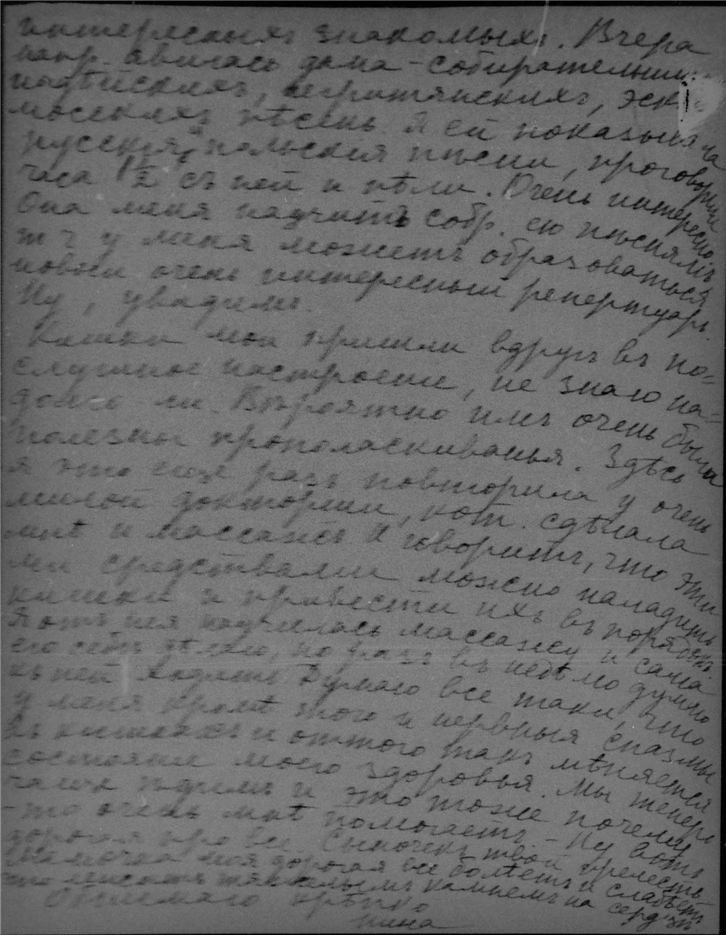 интересныхъ знакомыхъ. Вчера
напр. явилась дама-собирательница
индѣйскихъ, негритянскихъ, эски
мосскихъ пѣсенъ. Я ей показывала
русскія, польскія пѣсни, проговорили
часа 1½ съ ней и пѣли. Очень интересно
Она меня научитъ собр. ею пѣснямъ
т ч у меня можетъ образоваться
новый очень интересный репертуаръ.
Ну, увидимъ.
Кишки мои пришли вдругъ въ по-
слушное настроеніе, не знаю на-
долго-ли. Вѣроятно имъ очень были
полезны прополаскиванья. Здѣсь
я это еще разъ повторила у очень
милой докторши, кот. сдѣлала
мнѣ и массажъ и говоритъ, что эти
ми средствами можно наладить
кишки и привести ихъ въ порядокъ.
Я отъ нея научилась массажу и сама
его себѣ дѣлаю, но разъ въ недѣлю думаю
къ ней ходить. Думаю все таки, что
у меня кромѣ этого и нервныя спазмы
въ кишкахъ и оттого такъ мѣняется
состояніе моего здоровья. Мы теперь
чаще ѣдимъ и это тоже почему
-то очень мнѣ помогаетъ. - Ну вотъ
дорогая про все. Сыночекъ твой прелесть
Мамочка моя дорогая все болѣетъ и слабѣетъ
это лежитъ тяжелымъ камнемъ на сердцѣ
Обнимаю крѣпко
Нина